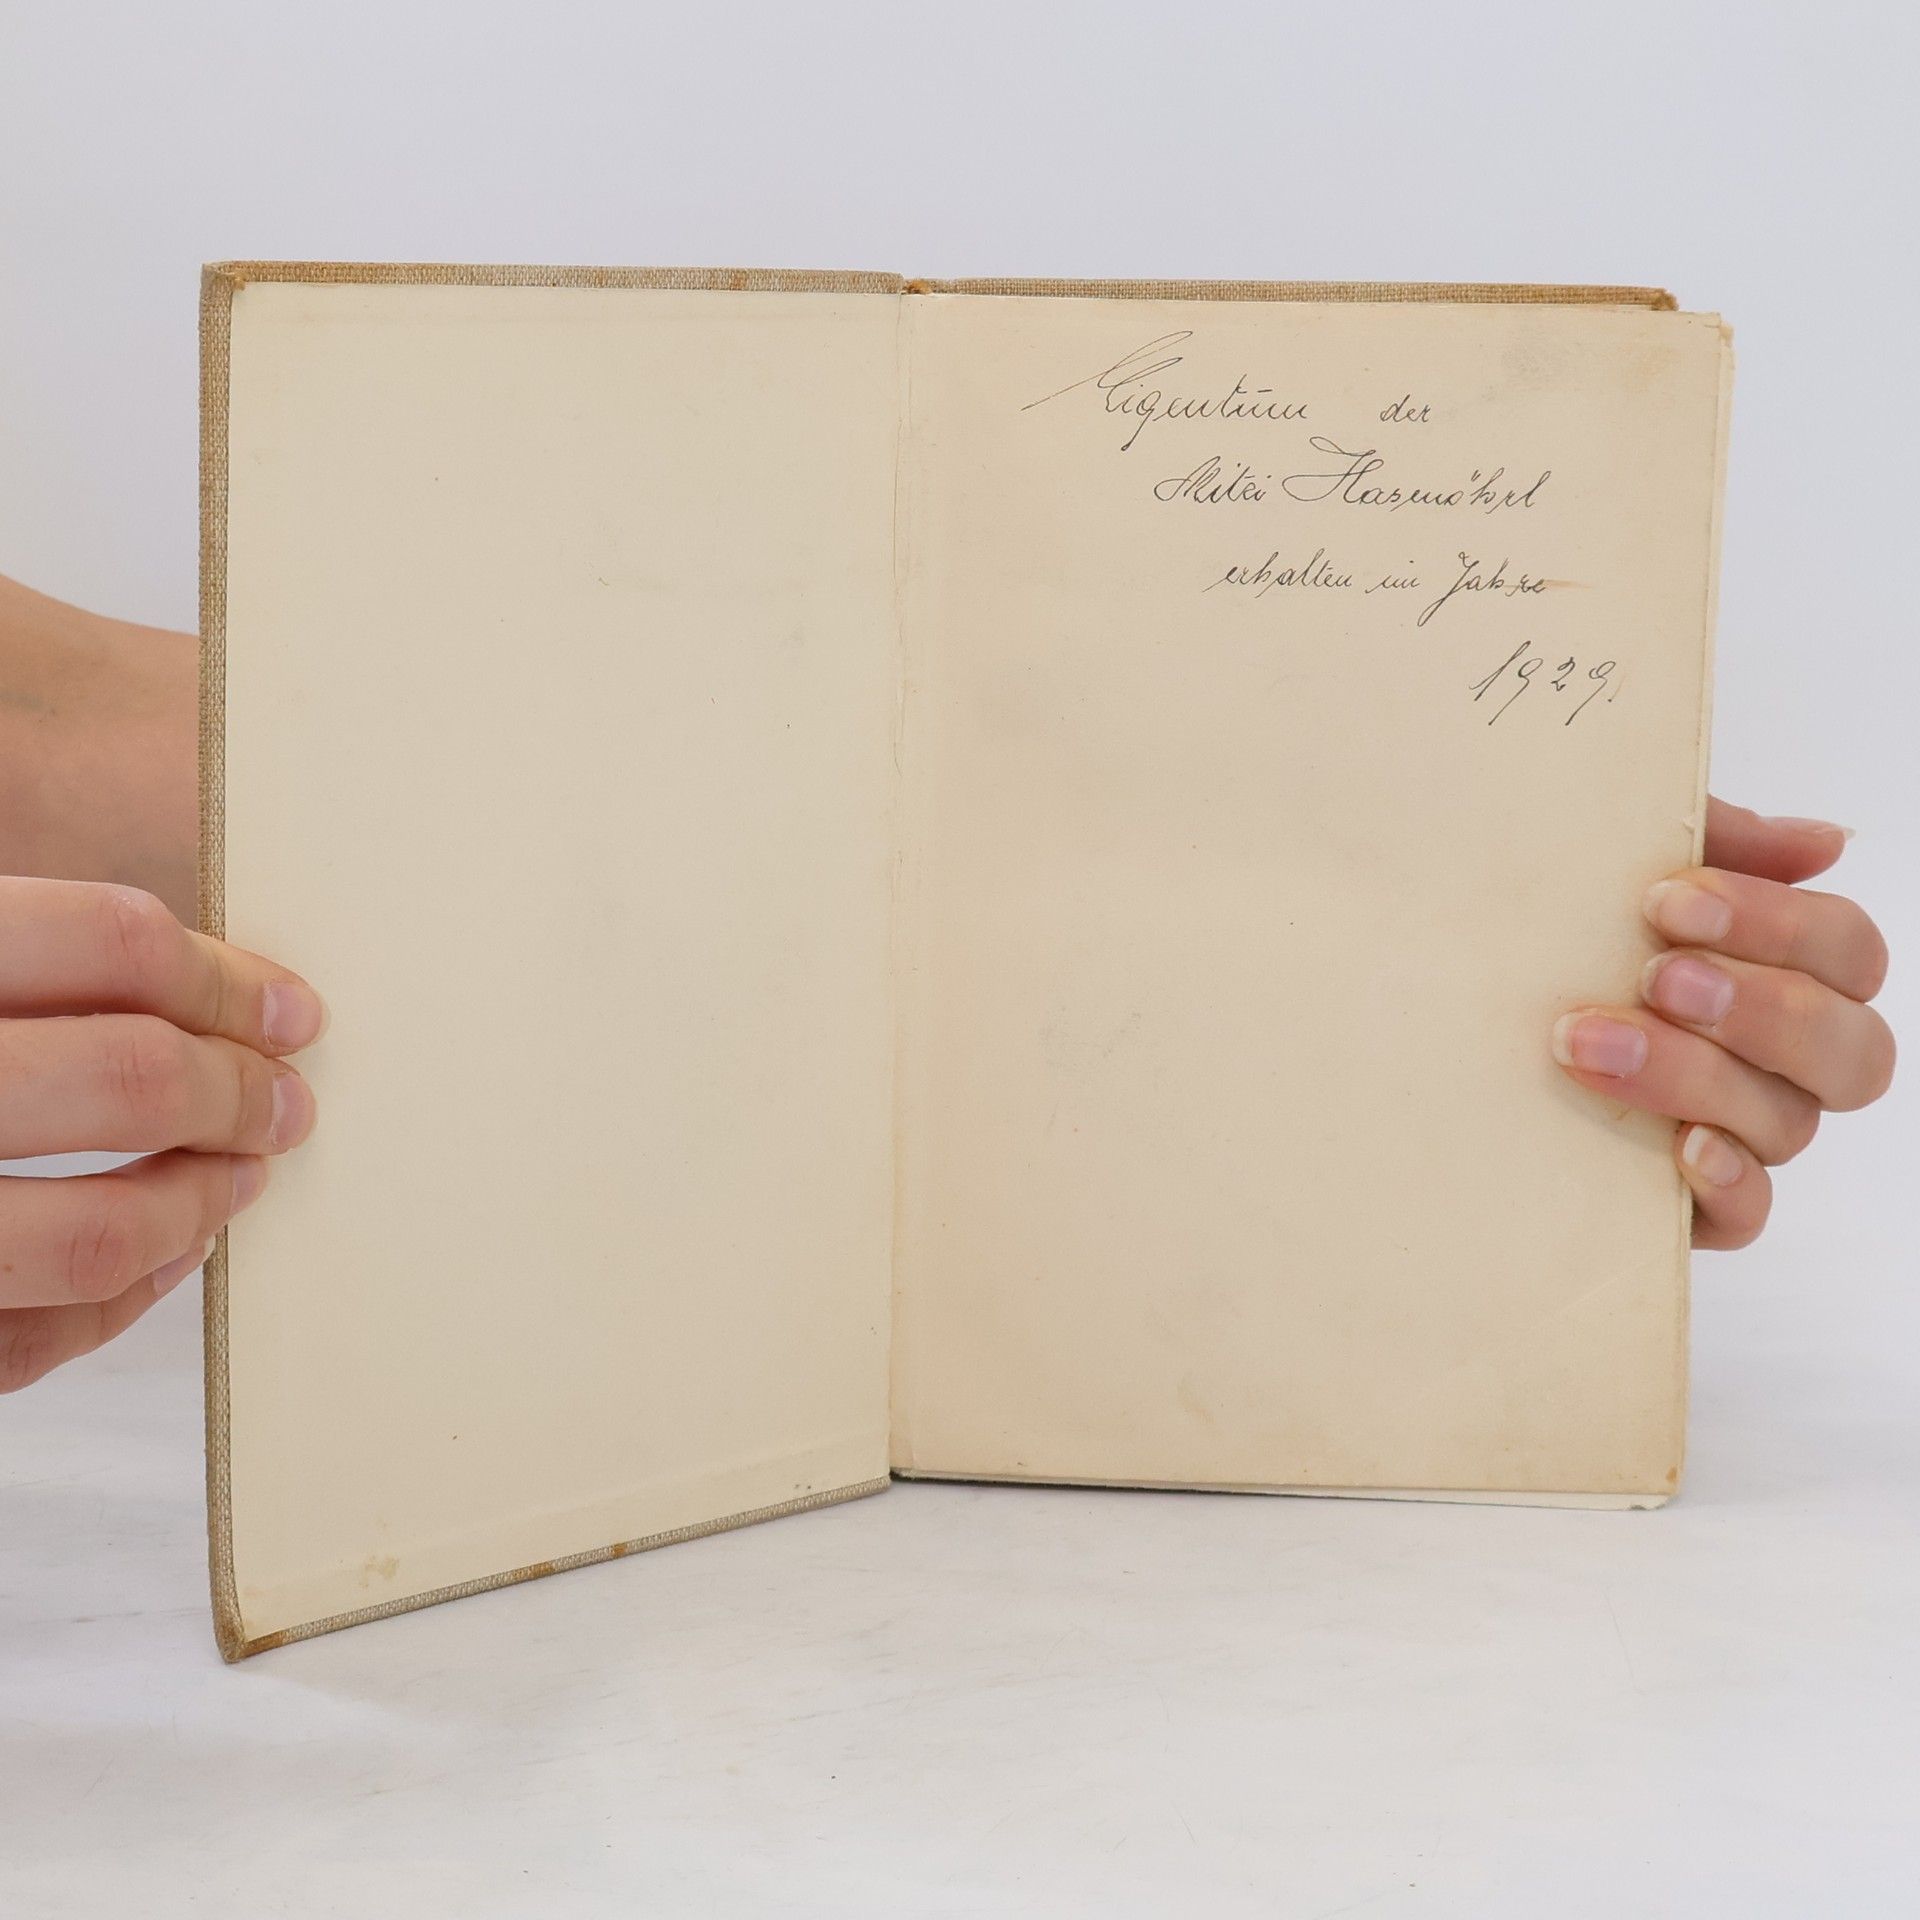 Eigentum der
Mitzi Hasenöhrl
erhalten im Jahre
1929.